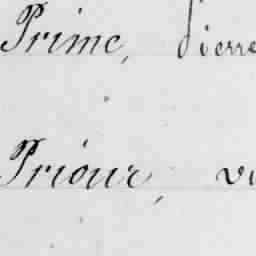 Prime, Pierre
Priour, v